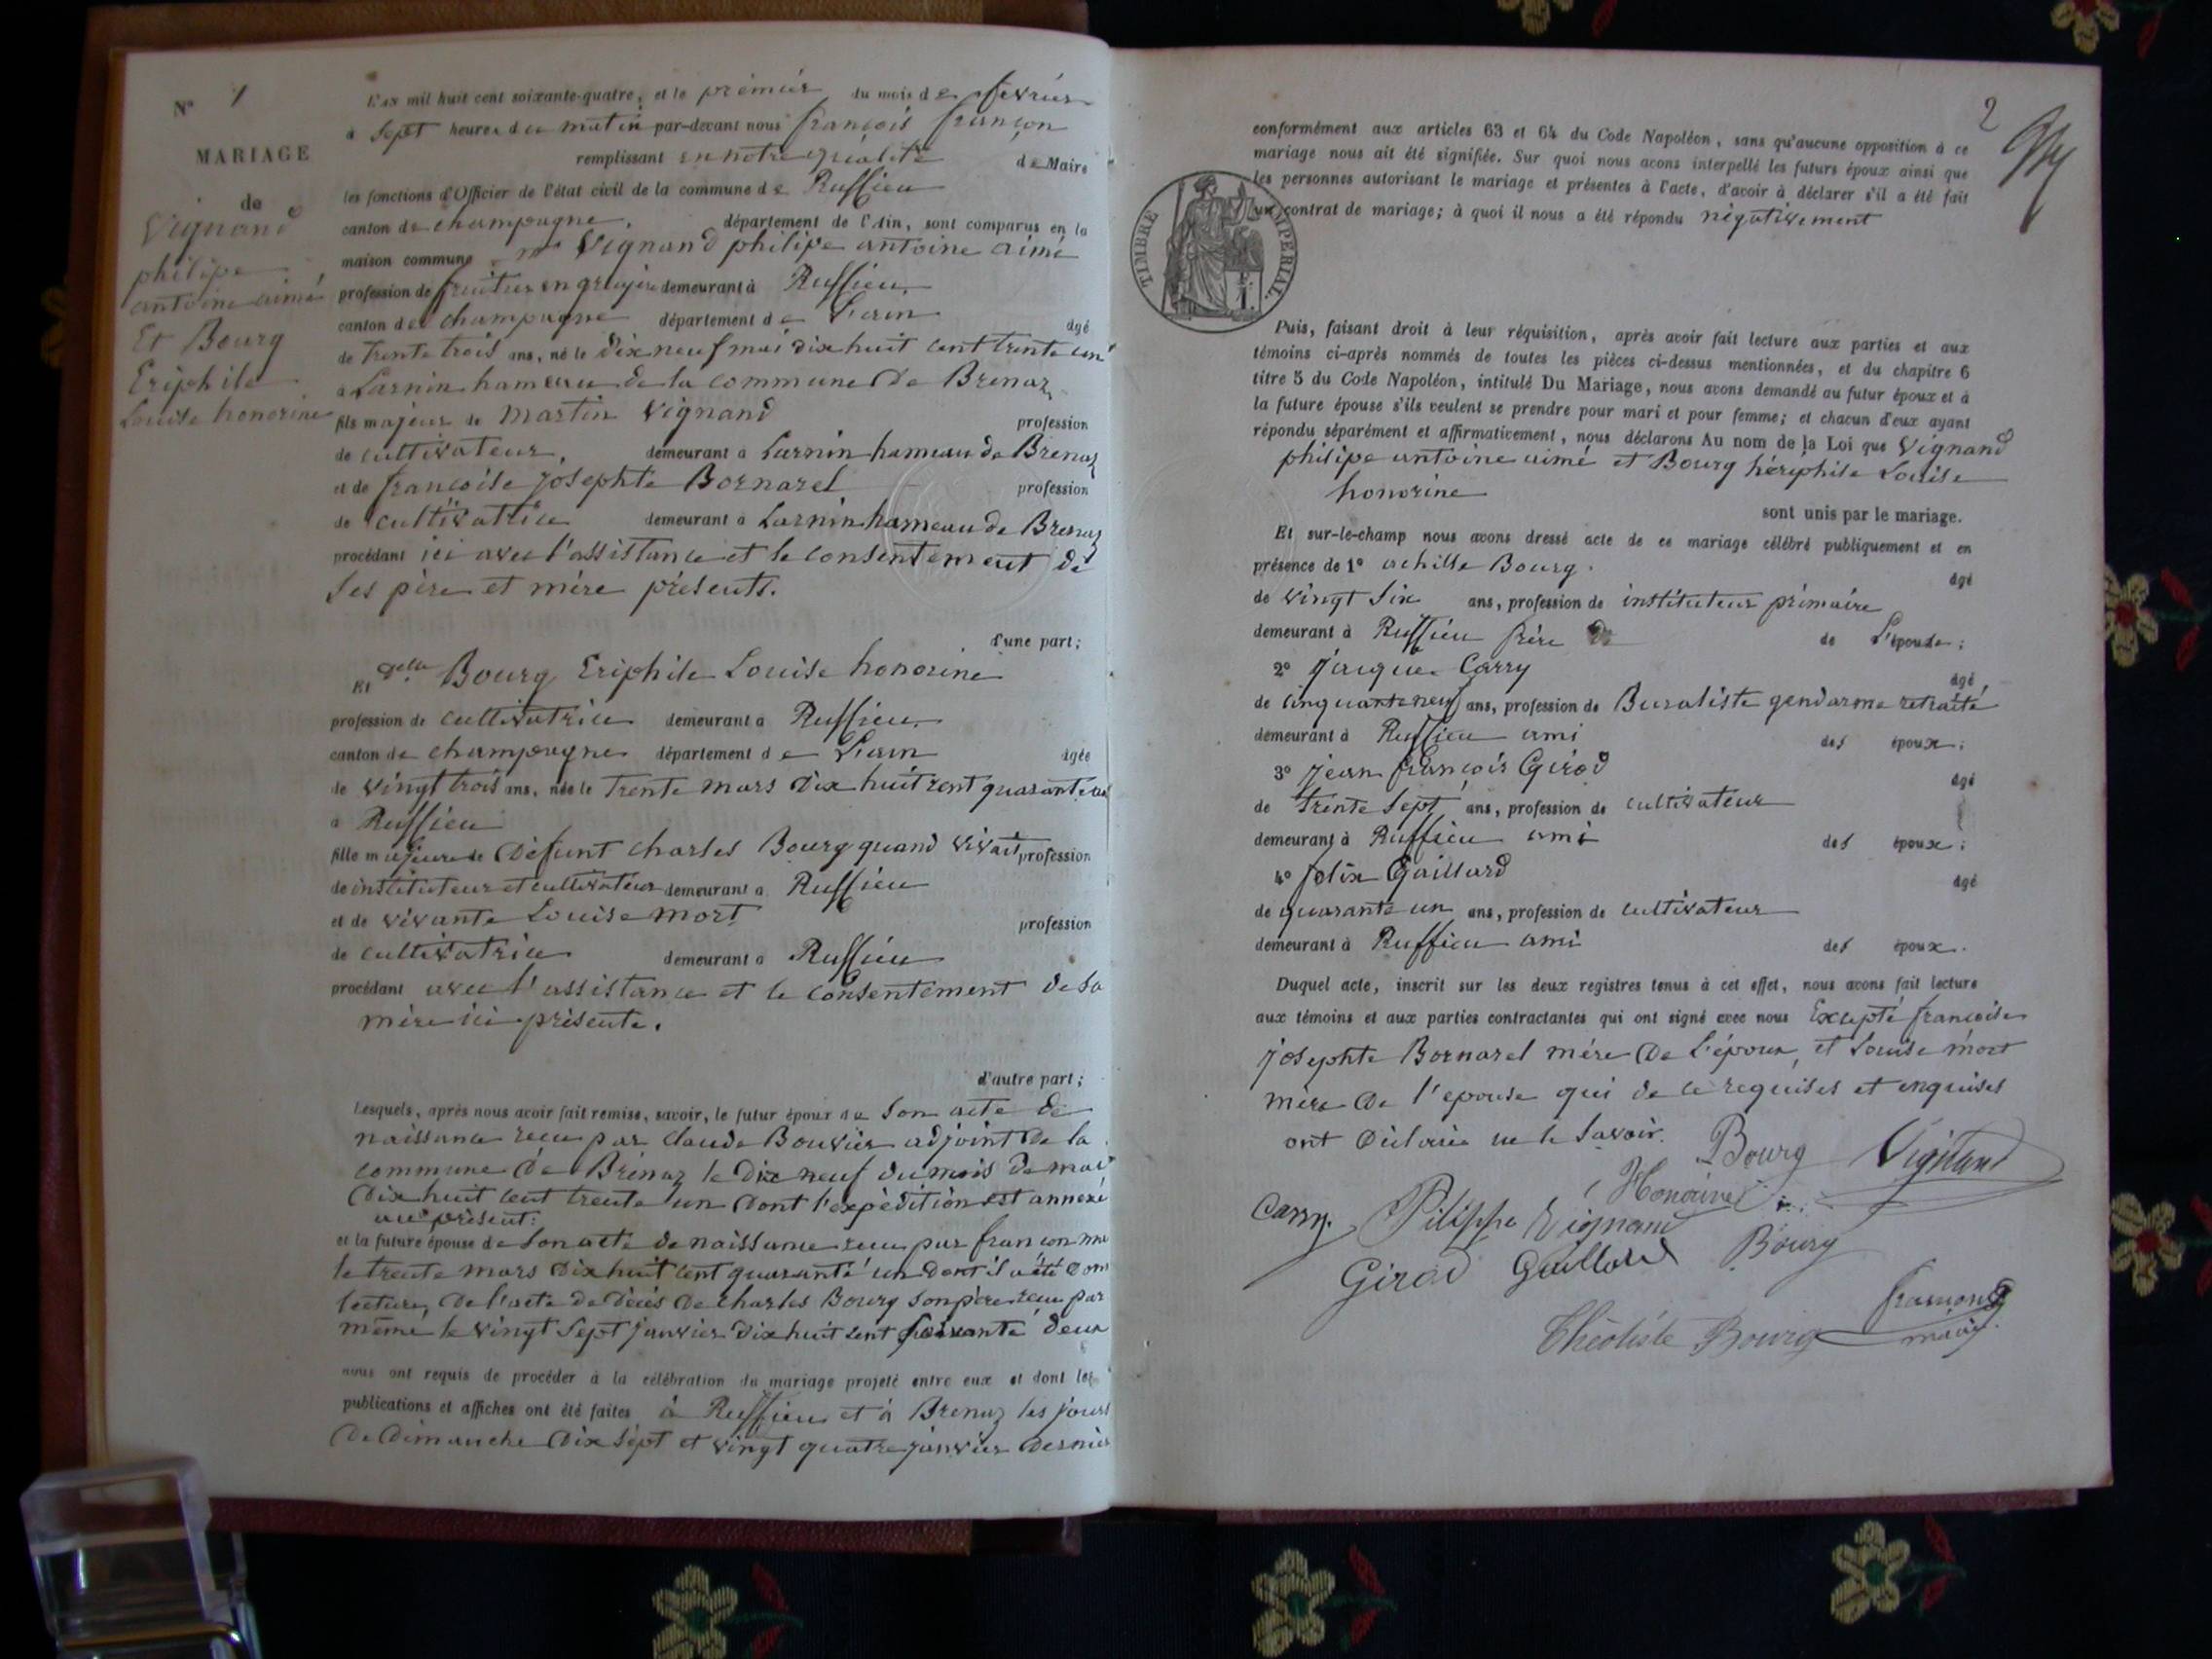 N° 1
MARIAGE
de
Vignand
philipe
antoine aimé
Et Bourg
Eriphile
Louise honorine
L'an mil huit cent soixante-quatre, et le premier du mois de février
à sept heures du matin par-devant nous françois françon
remplissant en notre qualité de Maire
les fonctions d'Officier de l'état civil de la commune de Ruffieu
canton de champagne, département de l'Ain, sont comparus en la
maison commune mr Vignand philipe antoine aimé
profession de fruitier en gruyère demeurant à Ruffieu,
canton de champagne département de L'ain âgé
de trente trois ans, né le dix neuf mai dix huit cent trente un
à Larnin hameau de la commune de Brenaz
fils majeur de martin Vignand profession
de cultivateur, demeurant à Larnin hameau de Brenaz
et de francoise josephte Bornarel profession
de cultivatrice demeurant à Larnin hameau de Brenaz
procédant ici avec l'assistance et le consentement de
ses père et mère présents.
d'une part;
Et delle Bourg Eriphile Louise honorine
profession de cultivatrice demeurant à Ruffieu.
canton de champagne département de L'ain âgée
de vingt trois ans, née le trente mars dix huit cent quarante un
à Ruffieu
fille majeure de défunt charles Bourg quand vivait profession
de instituteur et cultivateur demeurant à Ruffieu
et de vivante Louise mort profession
de cultivatrice demeurant à Ruffieu
procédant avec l'assistance et le consentement de sa
mère ici présente.
d'autre part;
Lesquels, après nous avoir fait remise, savoir, le futur époux de son acte de
naissance reçu par claude Bouvier adjoint de la
commune de Brénaz le dix neuf du mois de mai
dix huit cent trente un dont l'expédition est annexé
au présent:
et la future épouse de son acte de naissance reçu par françon
le trente mars dix huit cent quarante un dont il a été
lecture, de l'acte de décès de charles Bourg son père reçu par
même le vingt sept janvier dix huit cent soixante deux
nous ont requis de procéder à la célébration du mariage projeté entre eux et dont les
publications et affiches ont été faites à Ruffieu et à Brenaz les jours
de dimanche dix sept et vingt quatre janvier dernier
2
conformément aux articles 63 et 64 du Code Napoléon, sans qu'aucune opposition à ce
mariage nous ait été signifiée. Sur quoi nous avons interpellé les futurs époux ainsi que
les personnes autorisant le mariage et présentes à l'acte, d'avoir à déclarer s'il a été fait
un contrat de mariage; à quoi il nous a été répondu négativement
TIMBRE IMPERIAL.
Puis, faisant droit à leur réquisition, après avoir fait lecture aux parties et aux
témoins ci-après nommés de toutes les pièces ci-dessus mentionnées, et du chapitre 6
titre 5 du Code Napoléon, intitulé Du Mariage, nous avons demandé au futur époux et à
la future épouse s'ils veulent se prendre pour mari et pour femme; et chacun d'eux ayant
répondu séparément et affirmativement, nous déclarons Au nom de la Loi que Vignand
philipe antoine aimé et Bourg hériphile Louise
honorine
sont unis par le mariage.
Et sur-le-champ nous avons dressé acte de ce mariage célébré publiquement et en
présence de 1° achille Bourg. âgé
de vingt six ans, profession de instituteur primaire
demeurant à Ruffieu frère de L'épouse;
2° jacques Carry âgé
de cinquante neuf ans, profession de Buraliste gendarme retraité
demeurant à Ruffieu ami des époux;
3° jean françois Girod âgé
de trente sept ans, profession de cultivateur
demeurant à Ruffieu ami des époux;
4° félix Gaillard âgé
de quarante un ans, profession de cultivateur
demeurant à Ruffieu ami des époux.
Duquel acte, inscrit sur les deux registres tenus à cet effet, nous avons fait lecture
aux témoins et aux parties contractantes qui ont signé avec nous Excepté francoise
josephte Bornarel mère de l'époux, et Louise mort
mère de l'epouse qui de ce requises et enquises
ont déclarée ne le savoir.
Bourg Vignand
Honorine
Carry. Pilippe Vignand
Girod Gaillard Bourg
françon
Théotiste Bourg maire.